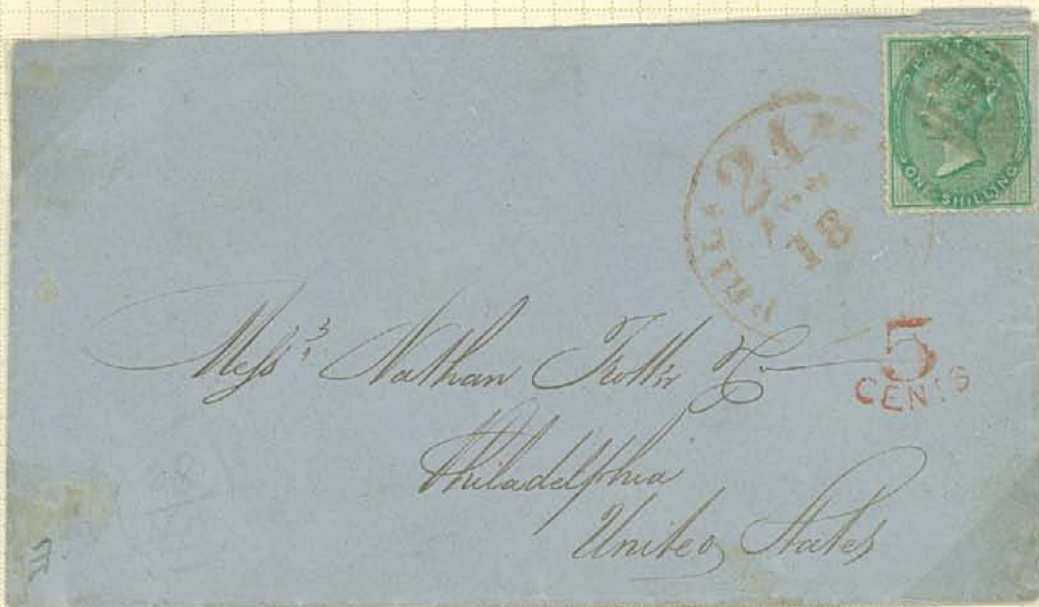 POSTAGE
ONE SHILLING
PHIL
21
18
5
CENTS
Mess.rs Nathan Trotter & Co
Philadelphia
United States